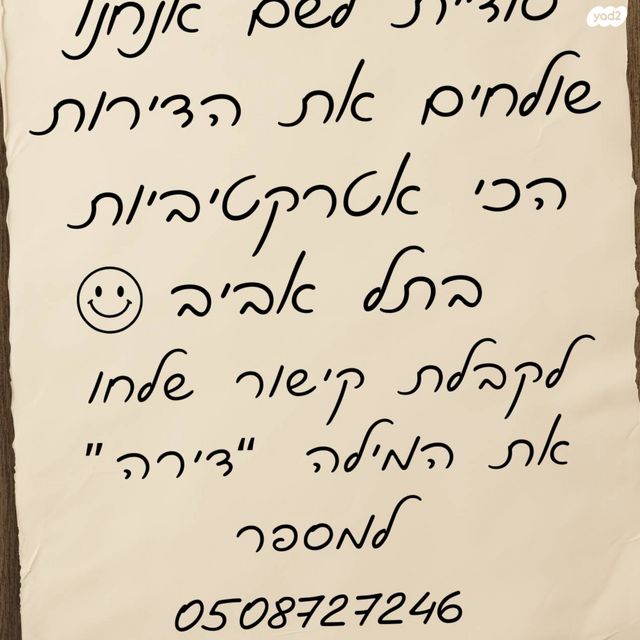 yad2
סודיית לשם אנחנו
שולחים את הדירות
הכי אטרקטיביות
בתל אביב
לקבלת קישור שלחו
את המילה "דירה"
למספר
0508727246